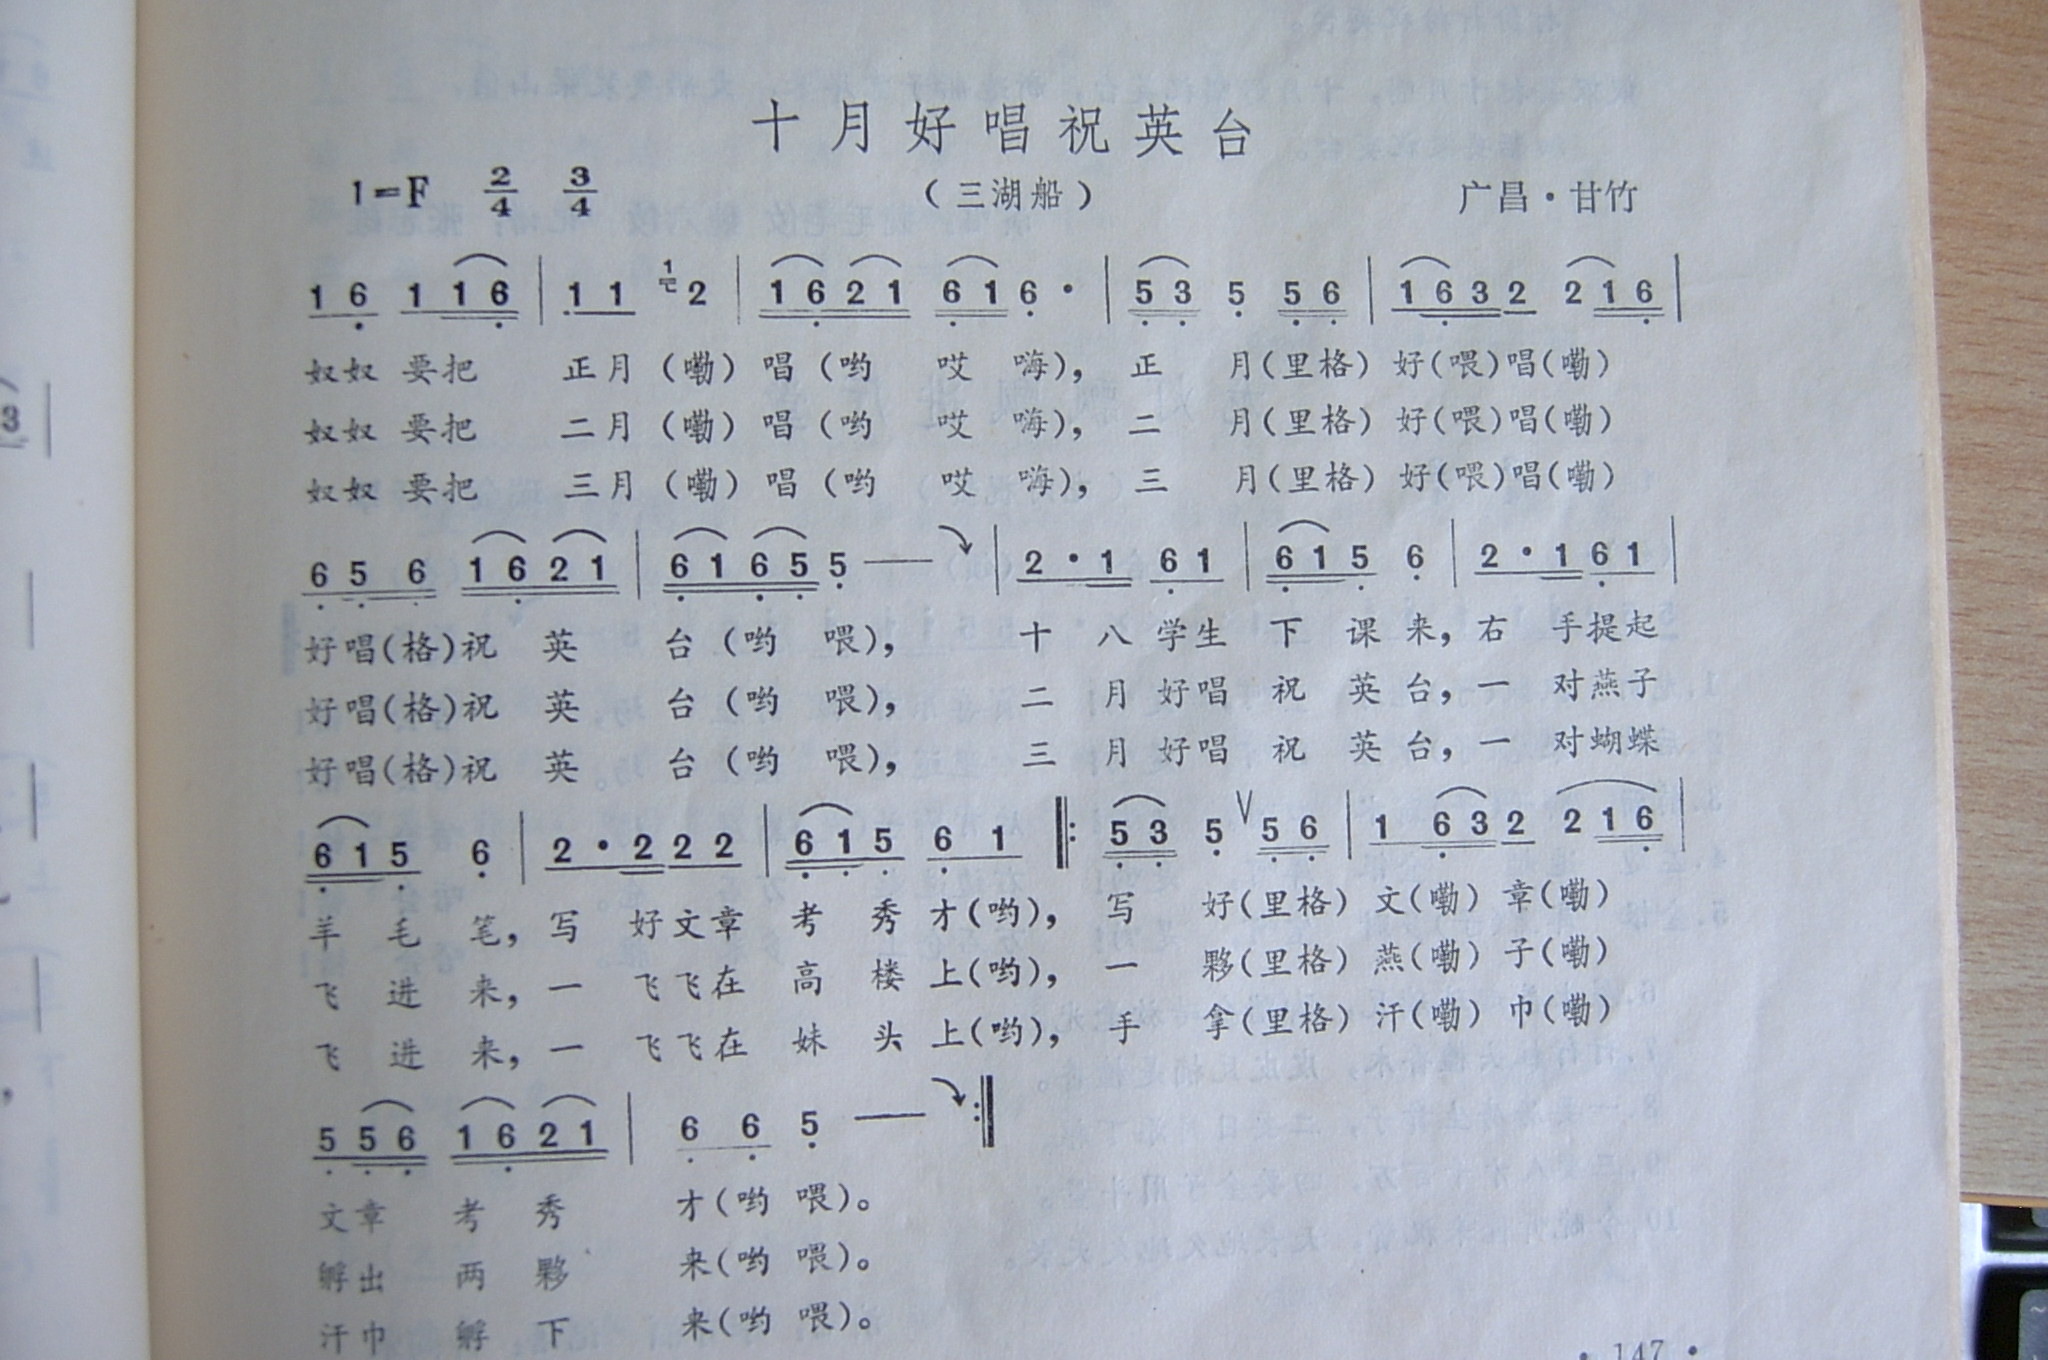 十月好唱祝英台
1=F 2/4 3/4 （三湖船） 广昌·甘竹
1 6 1 1 6 | 1 1 1 2 | 1 6 2 1 6 1 6 · | 5 3 5 5 6 | 1 6 3 2 2 1 6 |
奴奴 要把 正月（嘞）唱（哟 哎 嗨），正 月（里格）好（喂）唱（嘞）
奴奴 要把 二月（嘞）唱（哟 哎 嗨），二 月（里格）好（喂）唱（嘞）
奴奴 要把 三月（嘞）唱（哟 哎 嗨），三 月（里格）好（喂）唱（嘞）
6 5 6 1 6 2 1 | 6 1 6 5 5 — | 2 · 1 6 1 | 6 1 5 6 | 2 · 1 6 1 |
好唱（格）祝 英 台（哟 喂）， 十 八 学生 下 课 来，右 手提起
好唱（格）祝 英 台（哟 喂）， 二 月 好唱 祝 英 台，一 对燕子
好唱（格）祝 英 台（哟 喂）， 三 月 好唱 祝 英 台，一 对蝴蝶
6 1 5 6 | 2 · 2 2 2 | 6 1 5 6 1 ‖: 5 3 5 V 5 6 | 1 6 3 2 2 1 6 |
羊 毛 笔，写 好文章 考 秀 才（哟），写 好（里格）文（嘞）章（嘞）
飞 进 来，一 飞飞在 高 楼 上（哟），一 夥（里格）燕（嘞）子（嘞）
飞 进 来，一 飞飞在 妹 头 上（哟），手 拿（里格）汗（嘞）巾（嘞）
5 5 6 1 6 2 1 | 6 6 5 — :‖
文章 考 秀 才（哟 喂）。
孵出 两 夥 来（哟 喂）。
汗巾 孵 下 来（哟 喂）。
· 147 ·